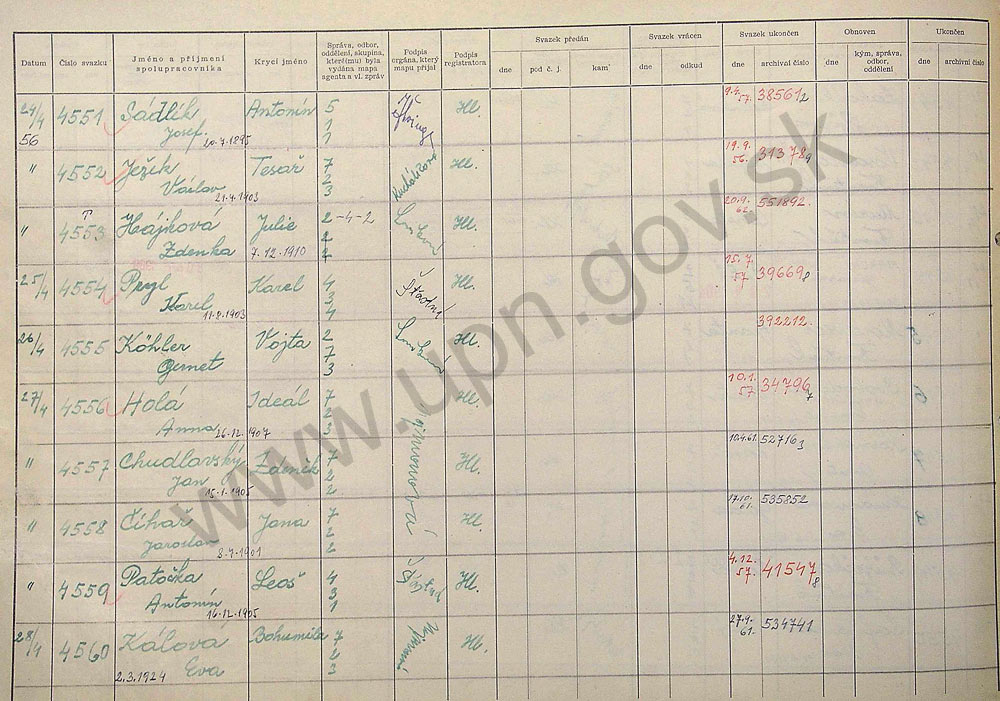 Datum Číslo svazku Jméno a příjmení spolupracovníka Krycí jméno Správa, odbor, oddělení, skupina, které(mu) byla vydána mapa agenta a vl. zpráv Podpis orgána, který mapu přijal Podpis registratora Svazek předán Svazek vrácen Svazek ukončen Obnoven Ukončen
dne pod č. j. kam dne odkud dne archivní číslo dne kým, správa, odbor, oddělení dne archivní číslo
24/4 56 4551 Sádlík Antonín 5 Hl. 9.4. 57. 385612
Josef 20.7.1895 1 1
" 4552 Ježek Tesař 7 Kuchálová Hl. 19.9. 56. 313789
Václav 21.4.1903 2 3
" 4553 Hájková Julie 2-4-2 Hl. 20.9. 62. 551892
Zdenka 7.12.1910 2
25/4 4554 Peyl Karel 4 Šťastný Hl. 15.7. 57 396698
Karel 11.2.1903 3 1
26/4 4555 Köhler Vojta 2 Hl. 392212
Gernet 7 3
27/4 4556 Holá Ideál 7 Hl. 10.1. 57 347967
Anna 26.12.1907 2 3
" 4557 Chudlavský Zdeněk 7 Hl. 10.4.61. 527163
Jan 15.1.1905 2 2
" 4558 Číhař Jana 7 Hl. 17.10. 61. 535852
Jaroslav 3.7.1901 2 2
" 4559 Patočka Leoš 4 Hl. 4.12. 57. 415478
Antonín 16.12.1905 3 1
28/4 4560 Kálova Bohumila 7 Hl. 27.9. 61. 534741
Eva 2.3.1924 2 3
www.upn.gov.sk